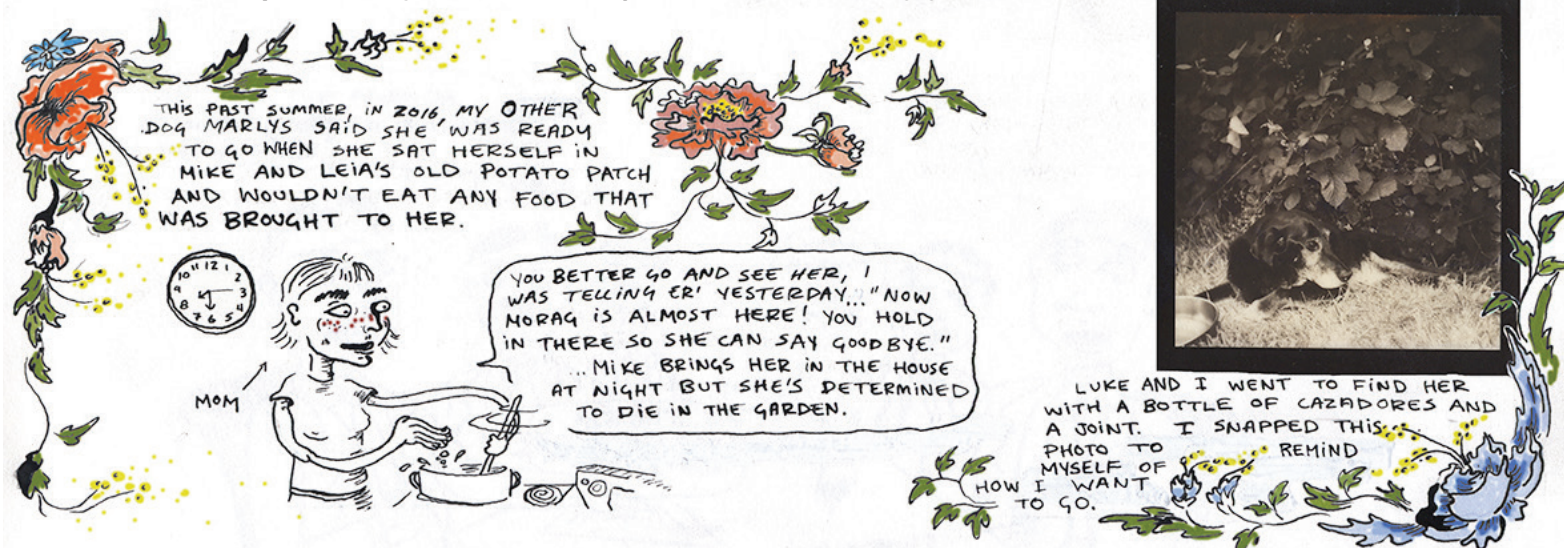 THIS PAST SUMMER, IN 2016, MY OTHER
DOG MARLYS SAID SHE WAS READY
TO GO WHEN SHE SAT HERSELF IN
MIKE AND LEIA'S OLD POTATO PATCH
AND WOULDN'T EAT ANY FOOD THAT
WAS BROUGHT TO HER.
10 11 12 1 2 3 4 5 6 7 8 9
MOM
YOU BETTER GO AND SEE HER, I
WAS TELLING ER' YESTERDAY... "NOW
MORAG IS ALMOST HERE! YOU HOLD
IN THERE SO SHE CAN SAY GOODBYE."
...MIKE BRINGS HER IN THE HOUSE
AT NIGHT BUT SHE'S DETERMINED
TO DIE IN THE GARDEN.
LUKE AND I WENT TO FIND HER
WITH A BOTTLE OF CAZADORES AND
A JOINT. I SNAPPED THIS
PHOTO TO REMIND
MYSELF OF
HOW I WANT
TO GO.